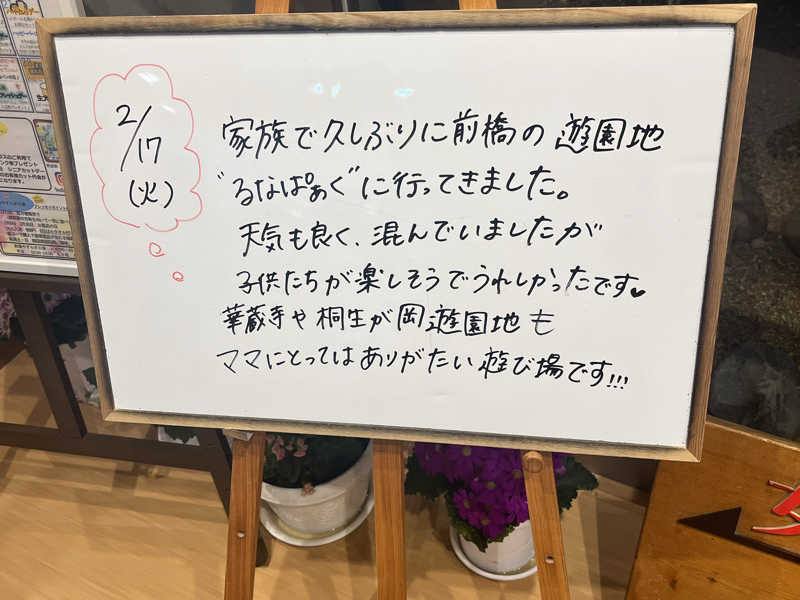 2/17
(火)
家族で久しぶりに前橋の遊園地
"るなぱぁく"に行ってきました。
天気も良く、混んでいましたが
子供たちが楽しそうでうれしかったです♥
華蔵寺や桐生が岡遊園地も
ママにとってはありがたい遊び場です!!!